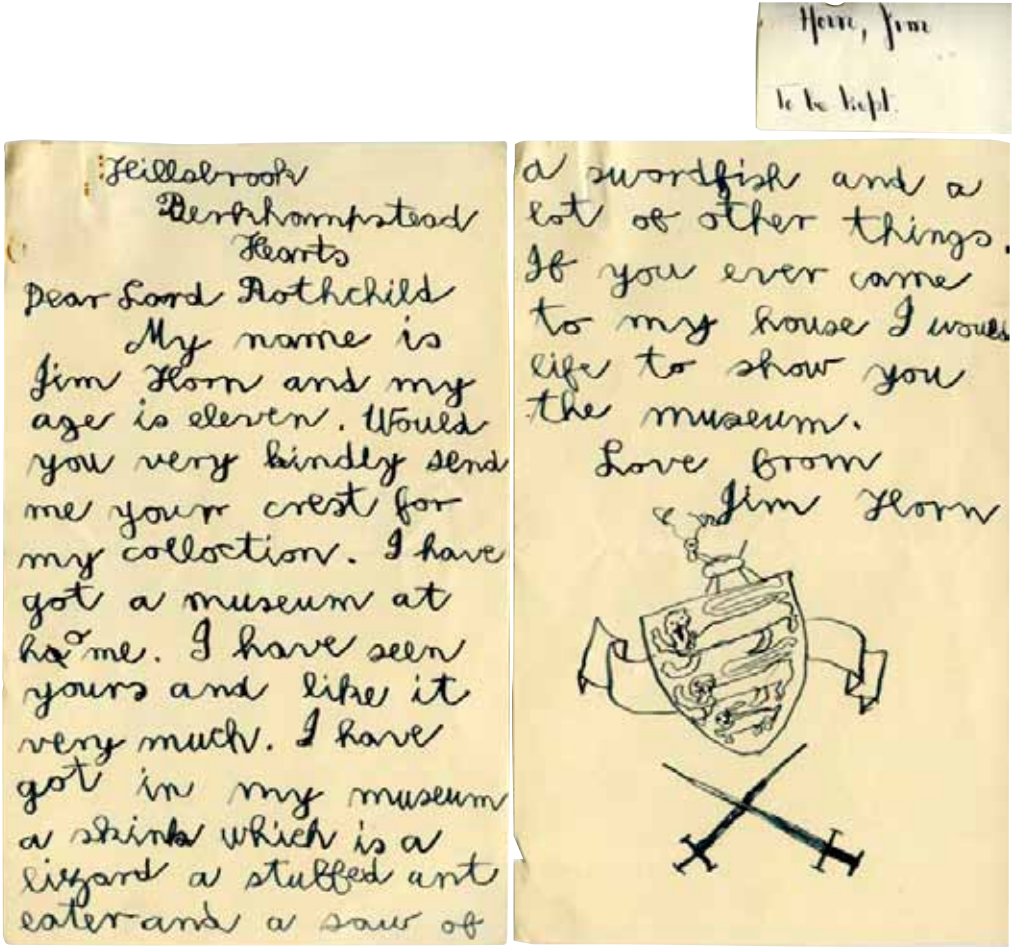 Horn, Jim
To be kept.
Hillsbrook
Berkhampstead
Hearts
Dear Lord Rothchild
My name is
Jim Horn and my
age is eleven. Would
you very kindly send
me your crest for
my colloction. I have
got a museum at
home. I have seen
yours and like it
very much. I have
got in my museum
a skink which is a
lizard a stuffed ant
eater and a saw of
a swordfish and a
lot of other things.
If you ever came
to my house I would
life to show you
the museum.
Love from
Jim Horn